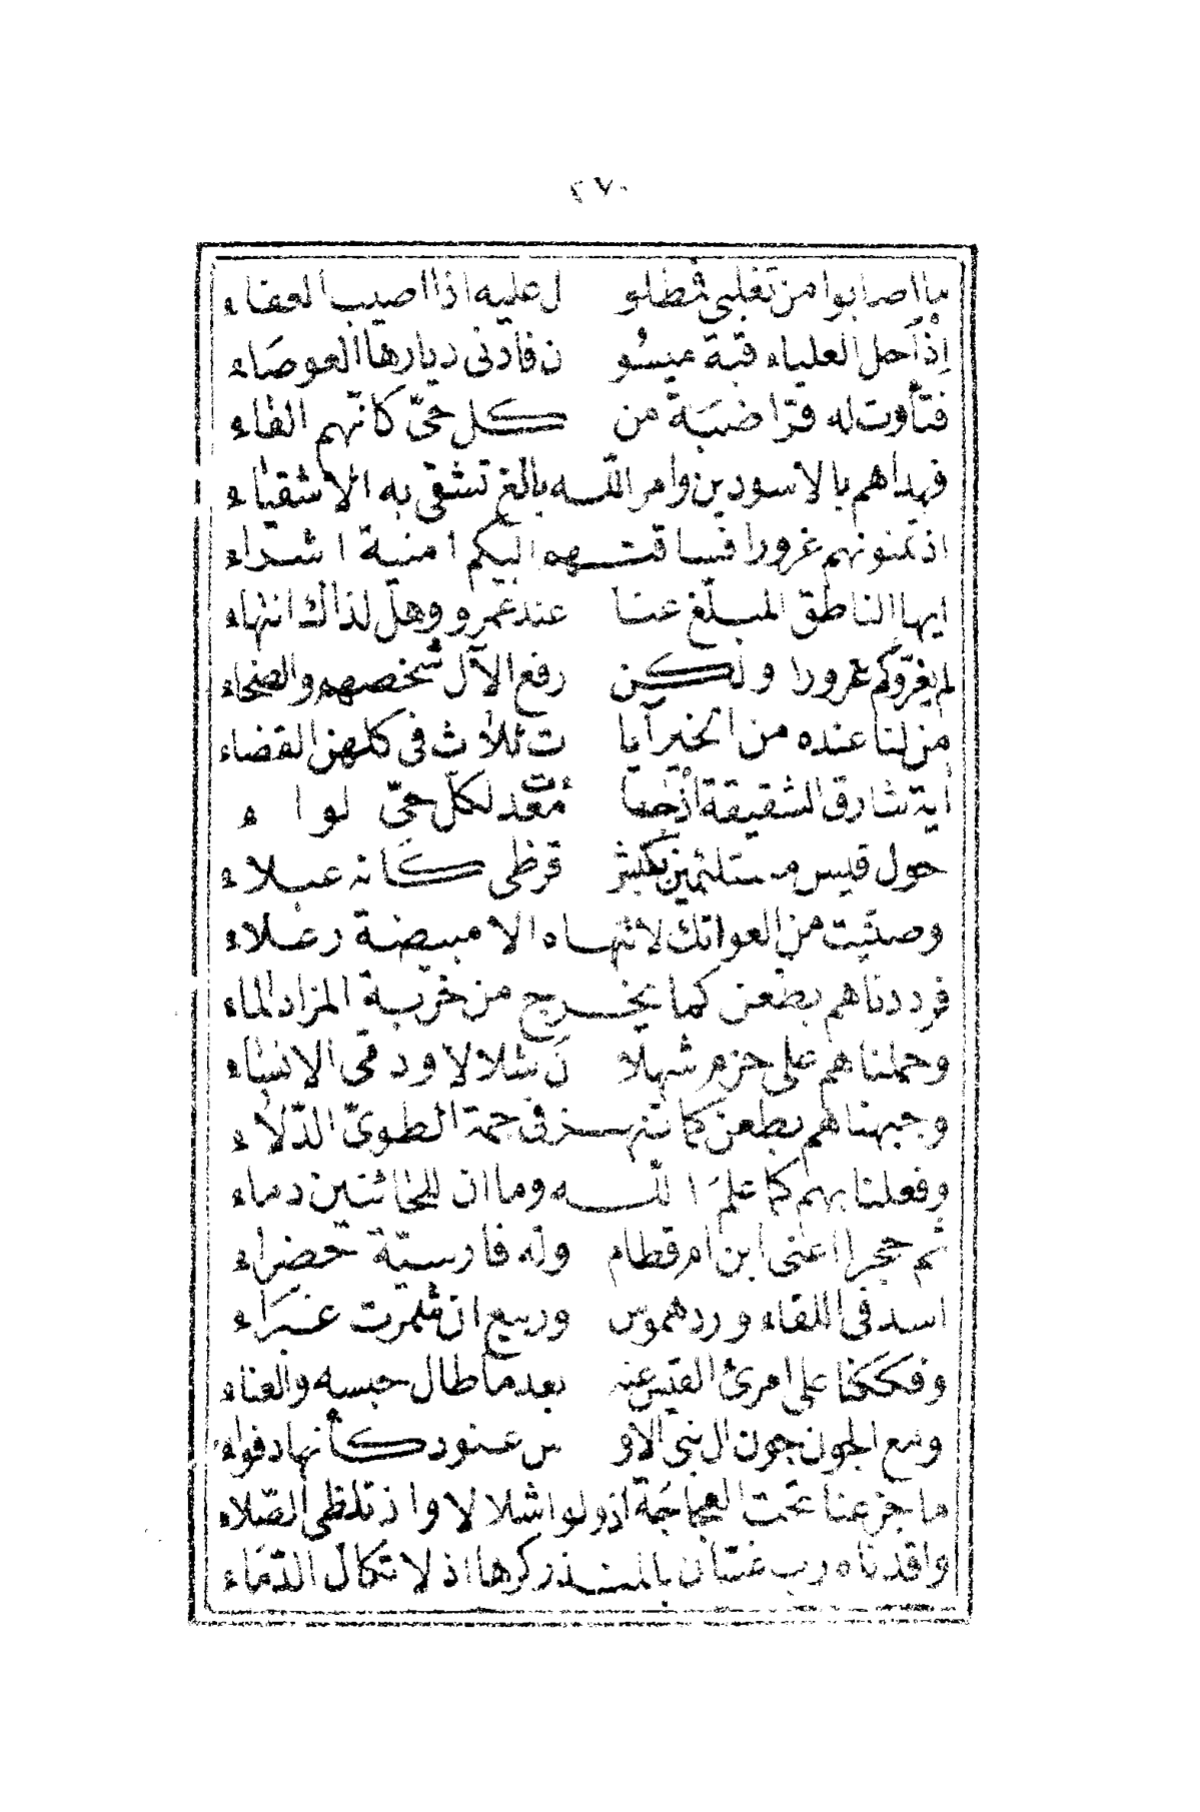 ٢٧٠
ما اصابوا من تغلبى فمطلو ل عليه اذا اصيب العفاء
إذ أحل العلياء قبة ميسو ن فأدنى ديارها العوصاء
فتأوت له قراضبة من كل حىّ كانهم القاء
فهداهم بالاسودين وامر اللـه بالغ تشقى به الاشقياء
اذ تمنونهم غرورا فساقتـهم اليكم امنية اشراء
ايها الناطق المبلّغ عنا عند عمرو وهل لذاك انتهاء
لم يغرّوكم غرورا ولكن رفع الآل شخصهم والضحاء
من لنا عنده من الخير آيا ت ثلاث فى كلهن القضاء
آية شارق الشقيقة اذ جا ءت معدّ لكلّ حىّ لواء
حول قيس مستلئمين بكبش قرظى كانه عبلاء
وصتيت من العواتك لا تنهاه الا مبيضة رعلاء
فرددناهم بطعن كما يخـرج من خربة المزاد الماء
وحملناهم على حزم شهلا ن شلالا ودمى الانساء
وجبهناهم بطعن كما تنهـز فى جمة الطوىّ الدّلاء
وفعلنا بهم كما علم اللـه وما ان للحائنين دماء
ثم حجرا اعنى ابن ام قطام وله فارسيّة خضراء
اسد فى اللقاء ورد هموس وربيع ان شمرت غبراء
وفككنا على امرئ القيس عنه بعد ما طال حبسه والعناء
ومع الجون جون ال بنى الاو س عنود كأنها دفواء
ما جزعنا تحت العجاجة اذ ولوا شلالا واذ تلظى الصّلاء
واقدناه رب غسّان بالمنـذر كرها اذ لا تكال الدّماء